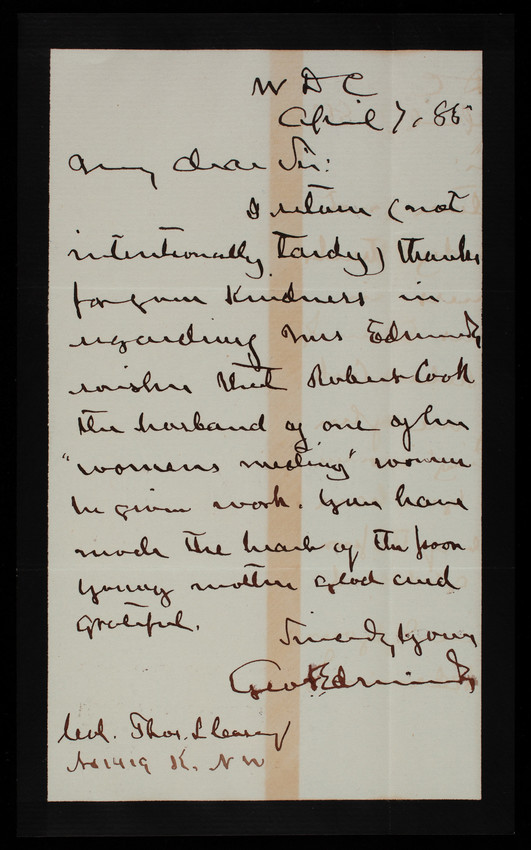 W D C
April 7, 85
My dear Sir:
I return (not
intentionally tardy) thanks
for your kindness in
regarding Mrs Edmunds
wishes that Robert Cook
the husband of one of her
"womens meeting" women
be given work. You have
made the heart of the poor
young mother glad and
grateful.
Sincerely yours
Geo F Edmunds
Col. Thos. L Casey
No 1419 K. N W